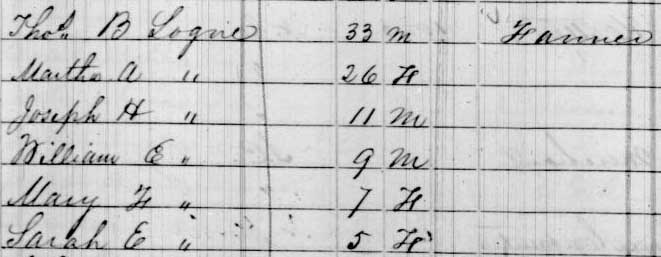 Thos B Logue 33 M Farmer
Martha A " 26 F
Joseph H " 11 M
William E " 9 M
Mary F " 7 F
Sarah E " 5 F